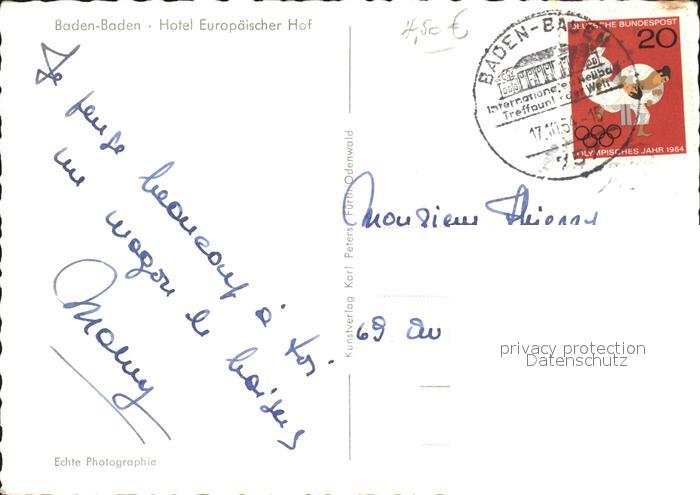 Baden-Baden · Hotel Europäischer Hof
4,50 €
Je pense beaucoup à toi
un wagon de baisers
Echte Photographie
Kunstverlag Karl Peters, Fürth/Odenwald
BADEN-BADEN
Internationales Heilbad
Treffpunkt der Welt
17.10.64
DEUTSCHE BUNDESPOST
20
OLYMPISCHES JAHR 1964
Monsieur
69
privacy protection
Datenschutz